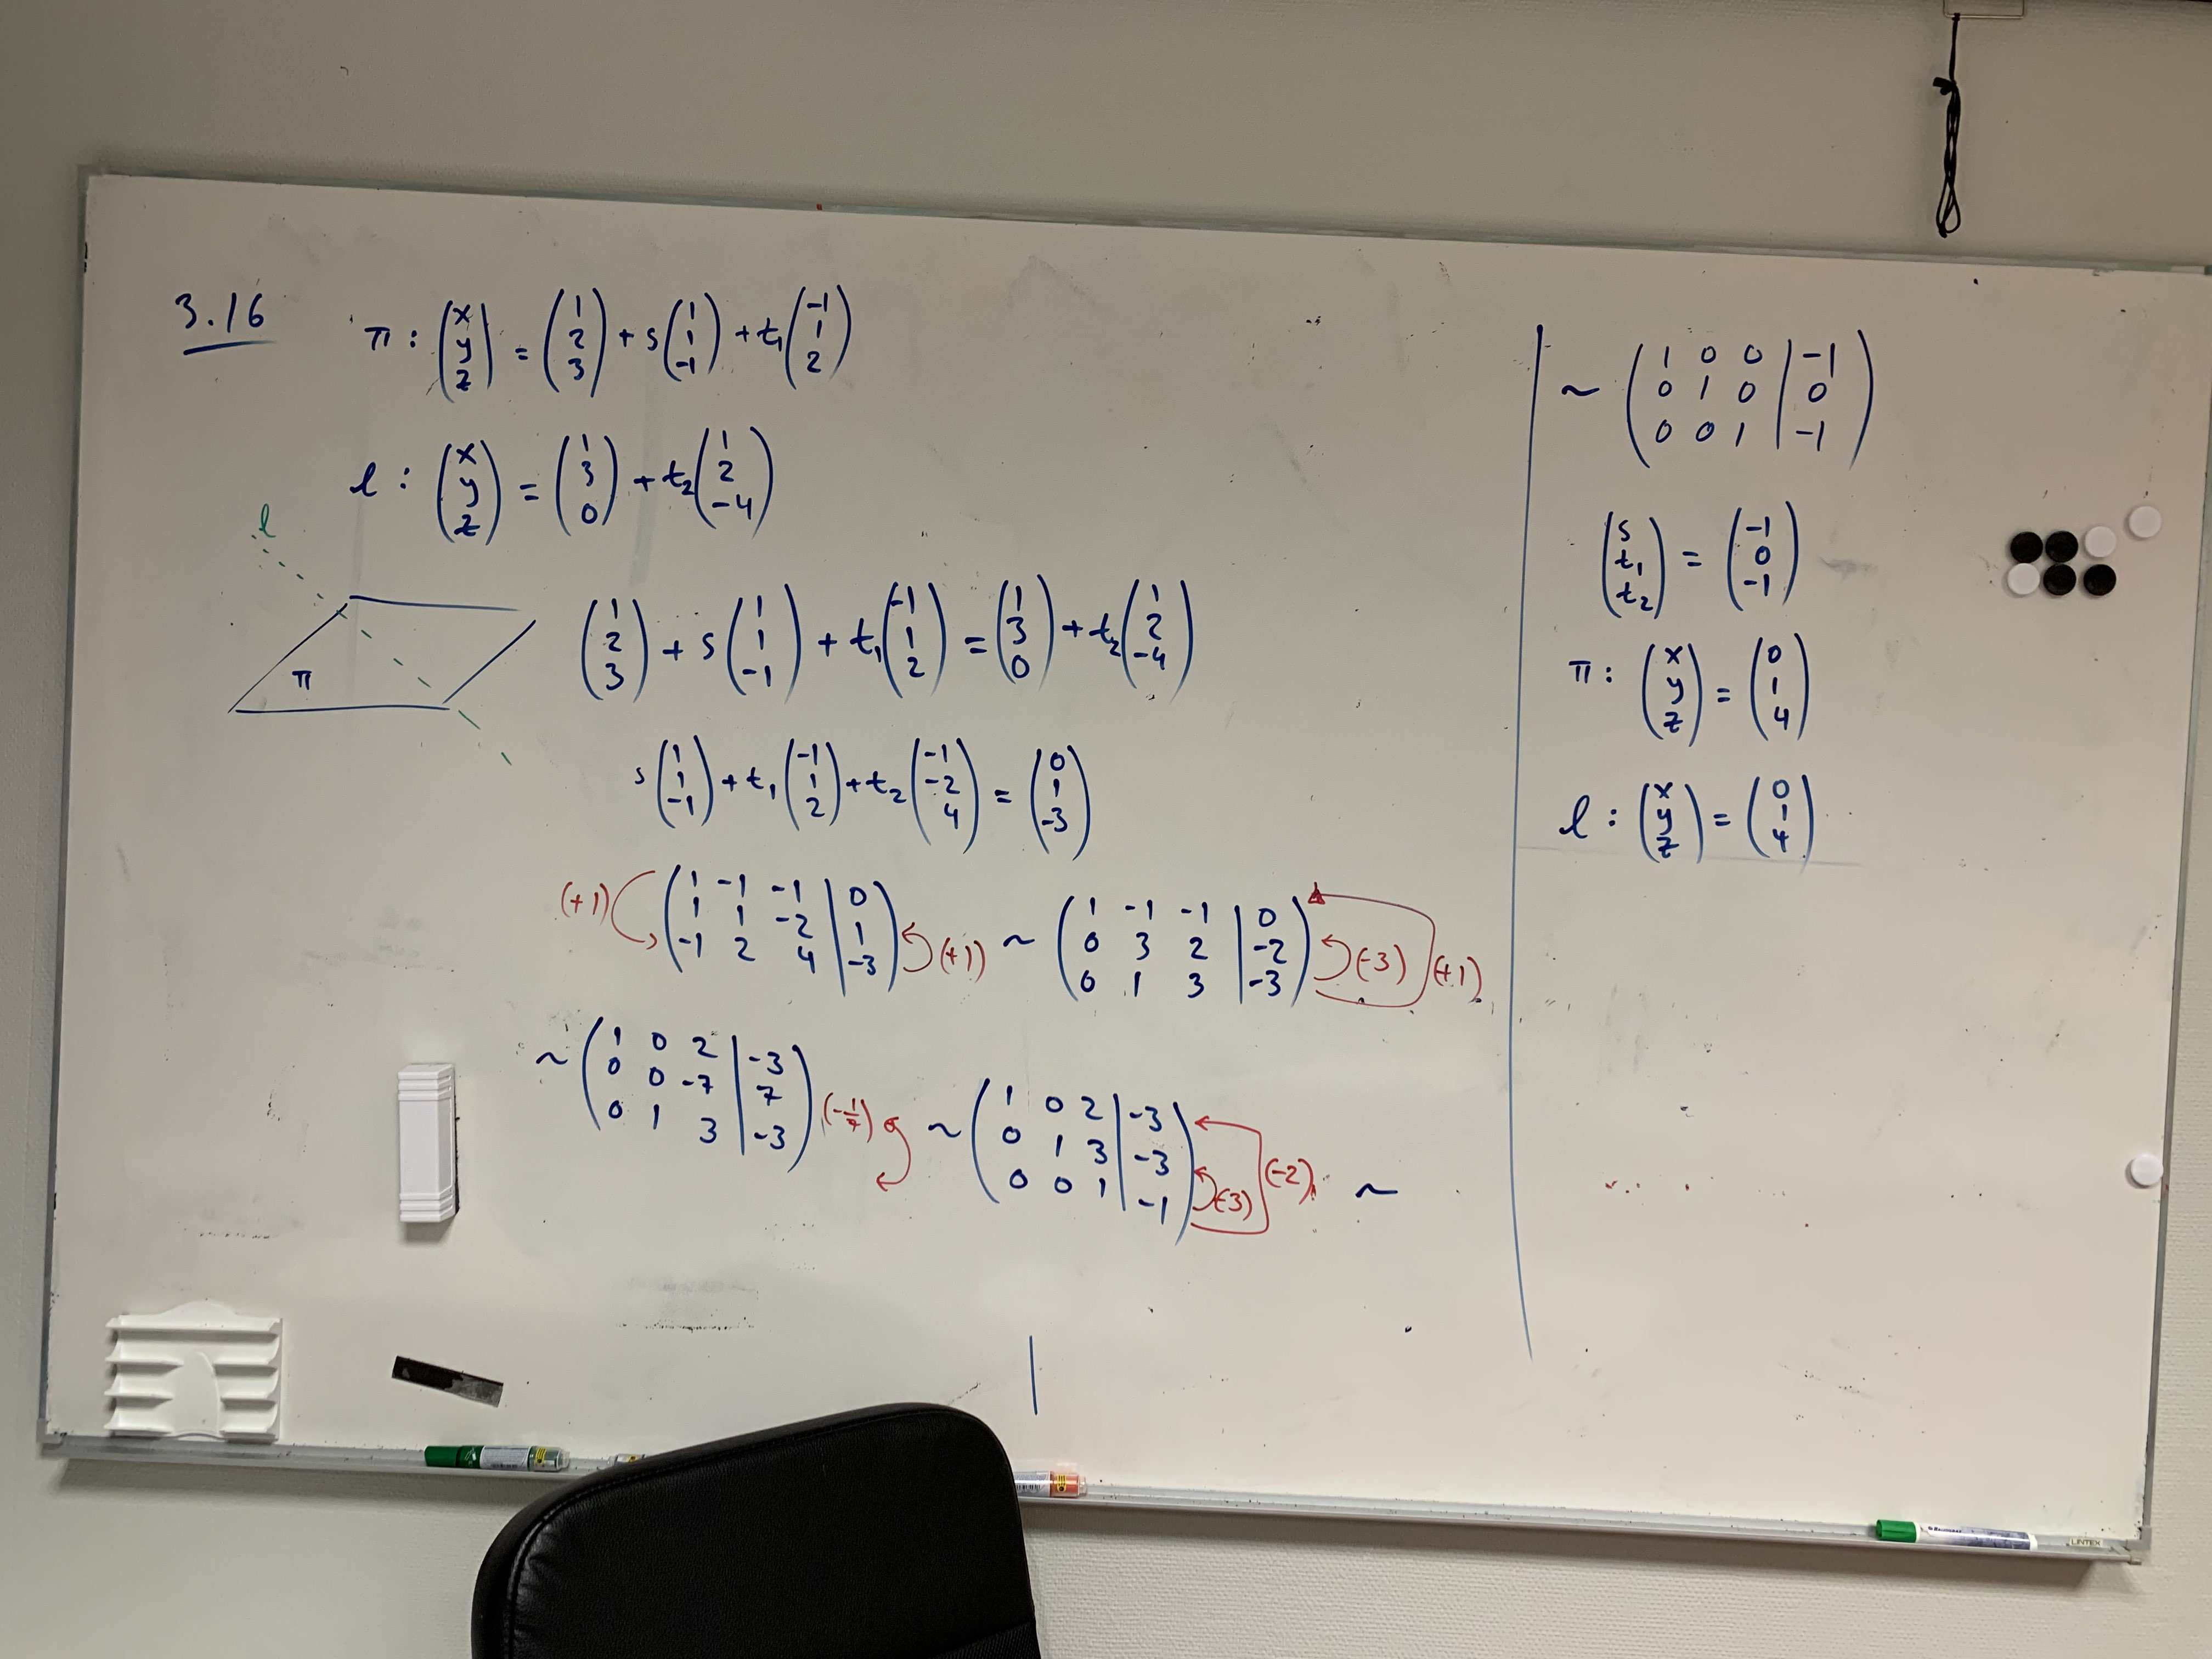 3.16
π : (x y z) = (1 2 3) + s(1 1 -1) + t₁(-1 1 2)
l : (x y z) = (1 3 0) + t₂(1 2 -4)
l
π
(1 2 3) + s(1 1 -1) + t₁(-1 1 2) = (1 3 0) + t₂(1 2 -4)
s(1 1 -1) + t₁(-1 1 2) + t₂(-1 -2 4) = (0 1 -3)
(+1) (1 -1 -1 | 0
1 1 -2 | 1
-1 2 4 | -3) (+1) ~ (1 -1 -1 | 0
0 3 2 | -2
0 1 3 | -3) (-3) (+1)
~ (1 0 2 | -3
0 0 -7 | 7
0 1 3 | -3) (-1/7) ~ (1 0 2 | -3
0 1 3 | -3
0 0 1 | -1) (-3) (-2) ~
~ (1 0 0 | -1
0 1 0 | 0
0 0 1 | -1)
(s t₁ t₂) = (-1 0 -1)
π : (x y z) = (0 1 4)
l : (x y z) = (0 1 4)
LINTEX